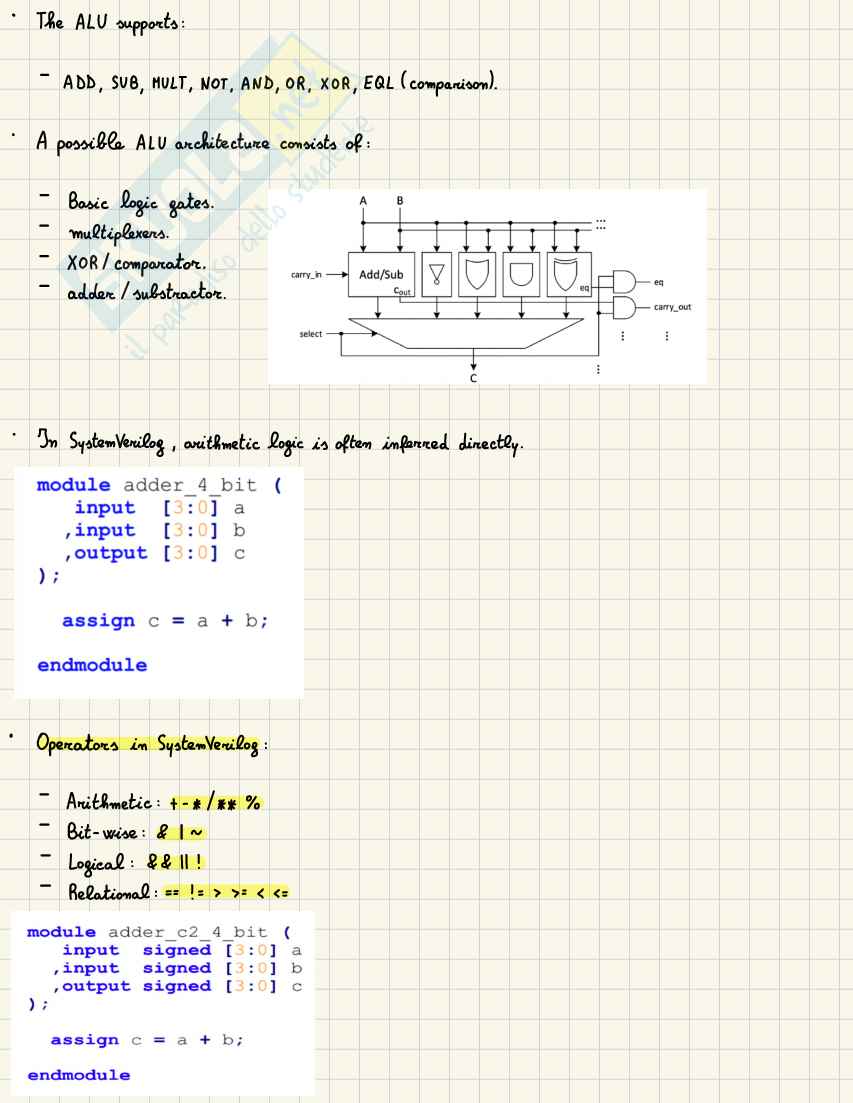 · The ALU supports:
- ADD, SUB, MULT, NOT, AND, OR, XOR, EQL (comparison).
· A possible ALU architecture consists of:
- Basic logic gates.
- multiplexers.
- XOR / comparator.
- adder / substractor.
A B
...
carry_in Add/Sub
cout
eq
eq
carry_out
select
C
· In SystemVerilog, arithmetic logic is often inferred directly.
module adder_4_bit (
input [3:0] a
,input [3:0] b
,output [3:0] c
);
assign c = a + b;
endmodule
· Operators in SystemVerilog:
- Arithmetic: + - * / ** %
- Bit-wise: & | ~
- Logical: && || !
- Relational: == != > >= < <=
module adder_c2_4_bit (
input signed [3:0] a
,input signed [3:0] b
,output signed [3:0] c
);
assign c = a + b;
endmodule
SKUOLA.net
il paradiso dello studente